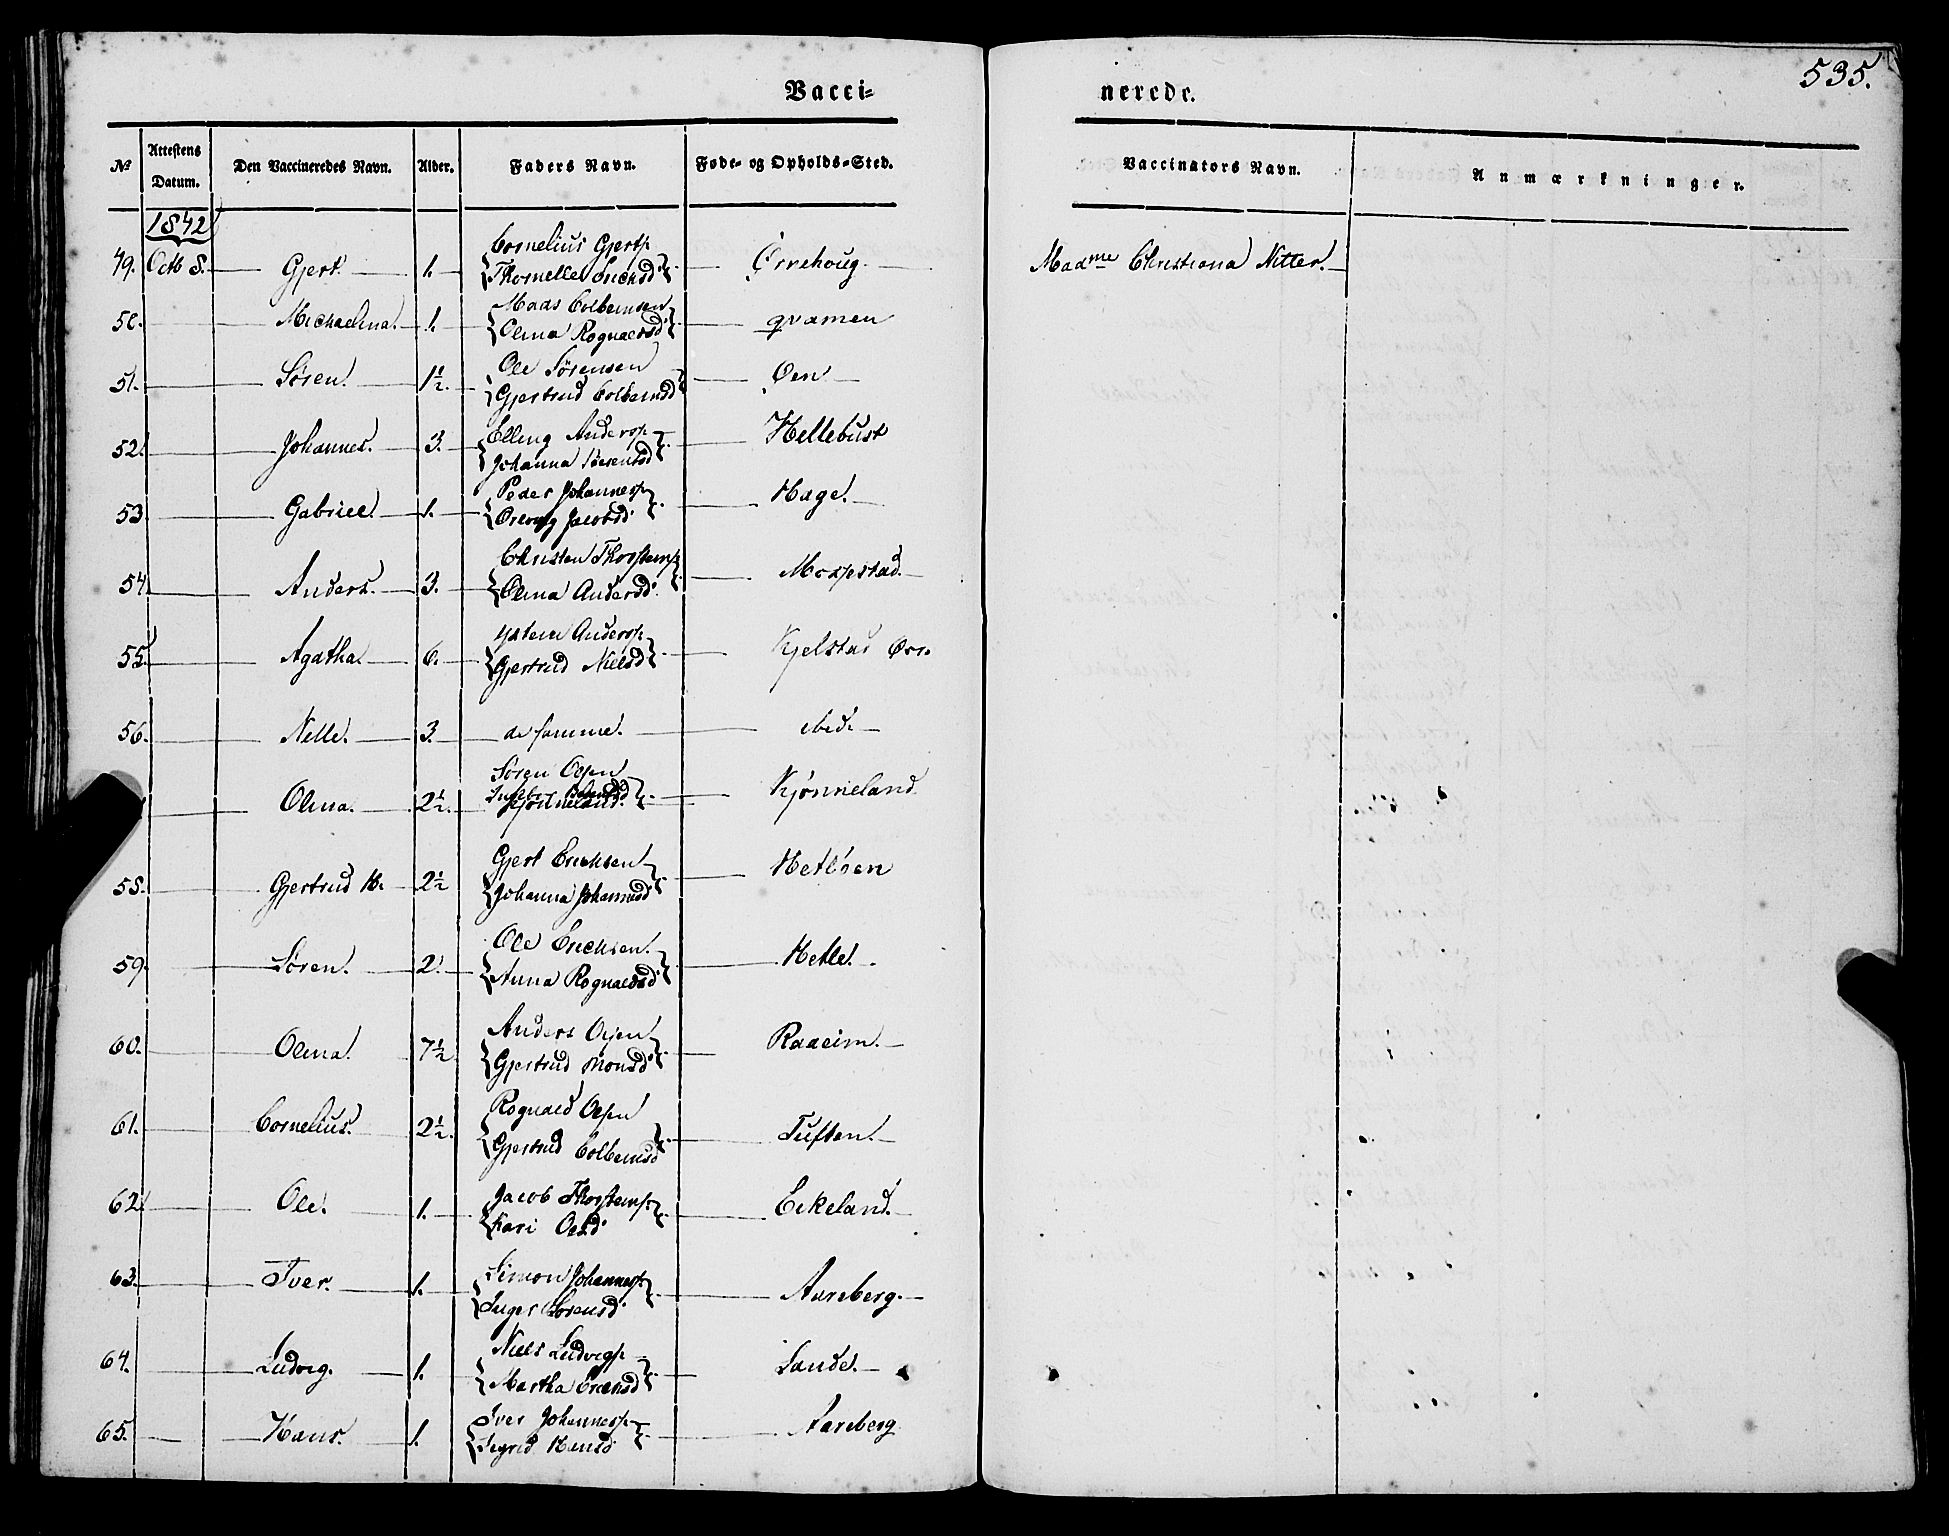 Vacci=
nerede.
535.
No Attestens Datum. Den Vaccineredes Navn. Alder. Faders Navn. Føde- og Opholds-Sted. Vaccinators Navn. Anmærkninger.
1842
Cornelius Gjerts.
49. Octb 8. Gjert. 1. Ørrehoug. Madme Christiana Nitter.
Thornelle Erichsd
Mads Colbeinsen
50. Michaelina. 1. qvamen
Olina Rognaldsd
Ole Sørensen
51. Søren. 1½. Øen
Gjertrud Colbeinsd
Elling Anders.
52. Johannes. 3. Hellebust
Johanna Sørensd
Peder Johannes.
53 Gabriel. 1. Hage.
Jacobsd
Christen Thorsteins.
54 Anders. 3. Mosestad.
Olina Andersd.
Anders.
55. Agatha. 6. Kjelstad Ørr.
Gjertrud Nielsd
56. Nelle. 3. de samme. ibid.
Søren Olsen
Olina. 2½. Kjønneland
Kjønneland.
Gjert Erichsen
58. Gjertrud H. 2½ Hetleen
Johanna Johannesd
Ole Erichsen.
59. Søren. 2. Hetle.
Anna Rognaldsd
Anders Olsen
60. Olina. 7½ Raaeim.
Gjertrud Monsd
Rognald Olsen
61. Cornelius. 2½. Tuften.
Gjertrud Colbeinsd
Jacob Thorsteins.
62. Ole. 1. Eikeland.
Kari Olsd.
Simon Johannes.
63. Iver. 1. Aareberg.
Inger Sørensd.
Niels Ludvigs.
64. Ludvig. 1. Sande.
Martha Erichsd
Iver Johannes.
65. Hans. 1. Aareberg
Sigrid Hansd